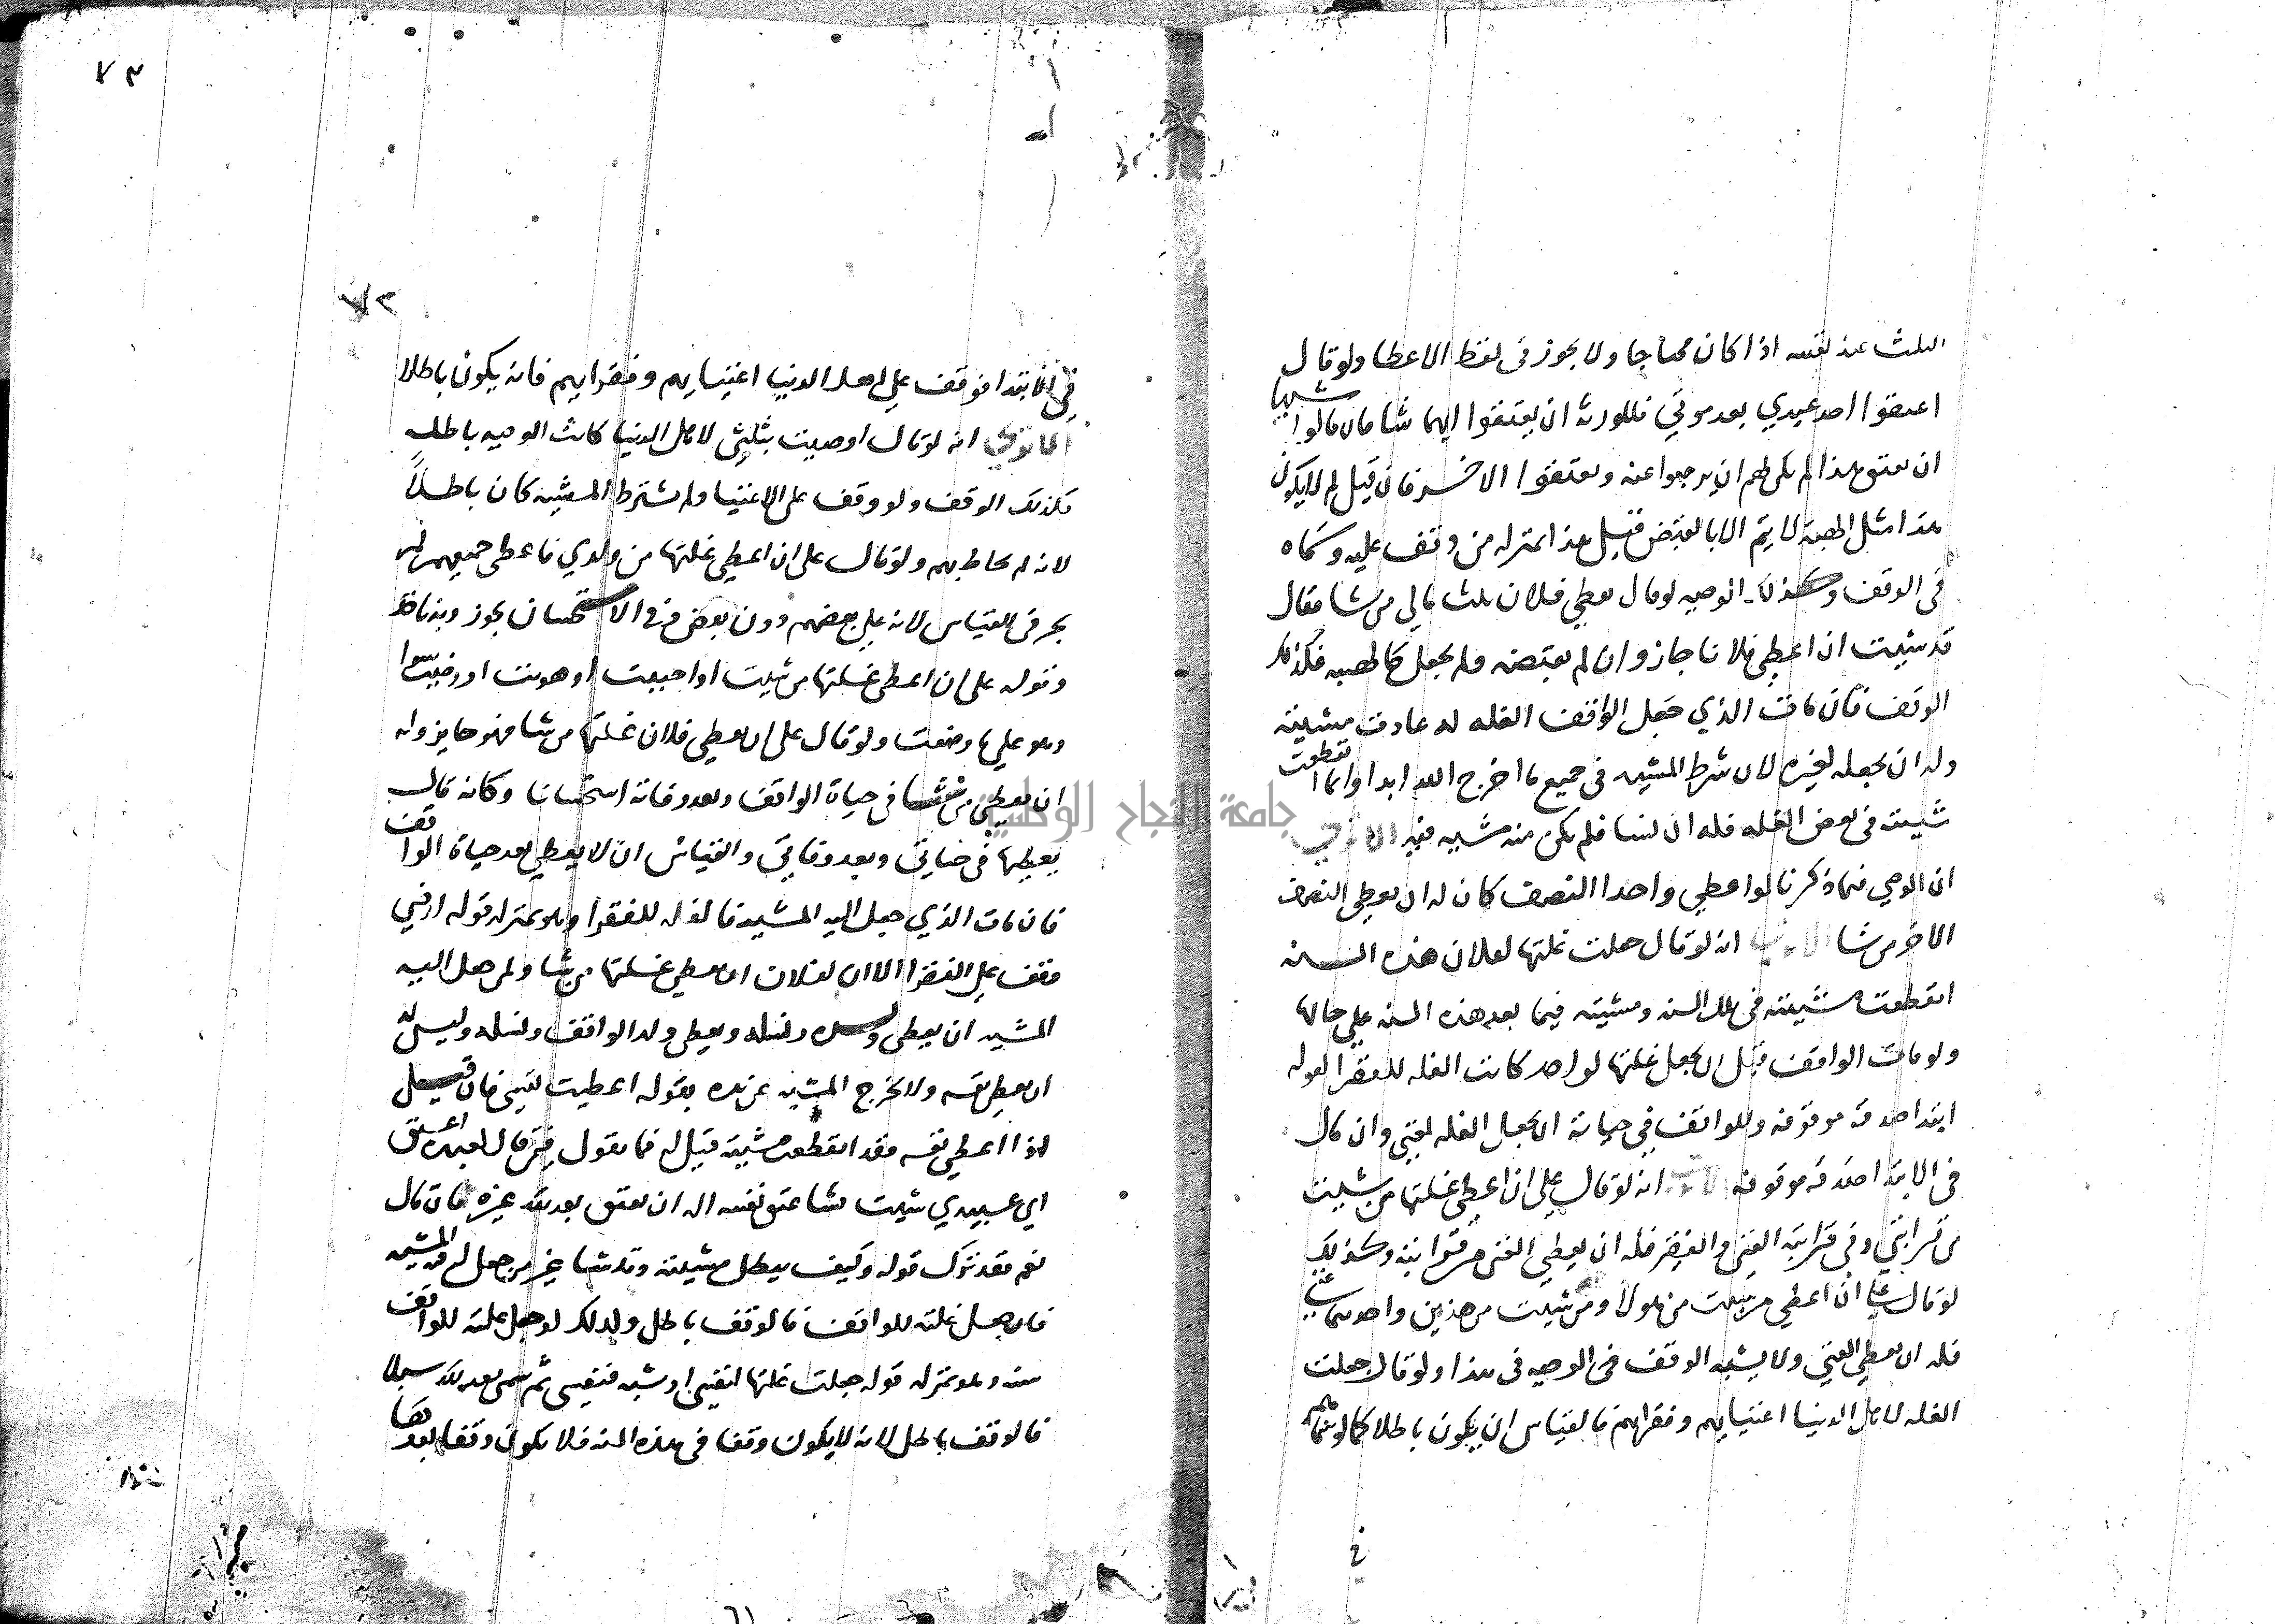 الثلث عند نفسه اذا كان محتاجا ولا يجوز في لفظ الاعطا ولو قال
اعتقوا احد عبدي بعد موتي فللورثه ان يعتقوا ايهما شا فان قالوا شينا
ان يعتق هذا لم يكن لهم ان يرجعوا عنه ويعتقوا الاخر فان قيل لم لا يكون
هذا مثل الهبه لا يتم الا بالقبض قيل هذا بمنزله من وقف عليه وسماه
في الوقف وكذلك الوصيه لو قال يعطي فلان ثلث مالي من شا فقال
قد شيت ان اعطي فلانا جاز وان لم يقبضه ولم يجعل كالهبه فكذلك
الوقف فان مات الذي جعل الواقف الغله له عادت مشيته
وله ان يجعله لغيره لان شرط المشيه في جميع ما اخرج الله ابدا وانما انقطعت
شيت في بعض الغله فله ان لنسا فلم يكن منه مشيه فيه الا تري
ان الوصي فيما ذكرنا لو اعطي واحدا النصف كان له ان يعطي النصف
الاخر من شا الا تري انه لو قال جعلت غلتها لفلان هذه السنه
انقطعت مشيته في تلك السنه ومشيته فيما بعد هذه السنه علي حالها
ولو مات الواقف قبل ان يجعل غلتها لواحد كانت الغله للفقرا لقوله
ابتدا صدقه موقوفه وللواقف في حياته ان يجعل الغله لغني وان قال
في الابتدا صدقه موقوفه الا تري انه لو قال علي ان اعطي غلتها من شيت
من قرابتي وفي قرابته الغني والفقير فله ان يعطي الغني من قرابته وكذلك
لو قال علي ان اعطي من شيت من هولا ومن شيت من هذين واحدهما غني
فله ان يعطي الغني ولا يشبه الوقف في الوصيه في هذا ولو قال جعلت
الغله لاهل الدنيا اغنيايهم وفقرايهم فالقياس ان يكون باطلا كما لو سماهم
في
٧٣
٧٣
في الابتدا فوقف علي اهل الدنيا اغنيايهم وفقرايهم فانه يكون باطلا
الا تري انه لو قال اوصيت بثلثي لاهل الدنيا كانت الوصيه باطله
فكذلك الوقف ولو وقف علي الاغنيا ولم يشترط المشيه كان باطلاً
لانه لم يحاط بهم ولو قال علي ان اعطي غلتها من ولدي فاعطي جميعهم لم
يجز في القياس لانه علي بعضهم دون بعض وفي الاستحسان يجوز وبه ناخذ
وقوله علي ان اعطي غلتها من شيت او احببت او هويت او رضيت سوا
وهو علي ما وضعت ولو قال علي ان يعطي فلان غلتها من شا فهو جايز وله
ان يعطي من شا في حياة الواقف وبعد وفاته استحسانا وكانه قال
يعطيها في حياتي وبعد وفاتي والقياس ان لا يعطي بعد حياة الواقف
فان مات الذي جعل اليه المشيه فالغله للفقرا وهو بمنزله قوله ارضي
وقف علي الفقرا الا ان لفلان ان يعطي غلتها من شا ولمن جعل اليه
المشيه ان يعطي ولده ونسله ويعطي ولد الواقف ونسله وليس له
ان يعطي نفسه ولا تخرج المشيه عن يده بقوله اعطيت نفسي فان قيل
اذا اعطي نفسه فقد انقطعت مشيته قيل له فما تقول فيمن قال لعبده اعتق
اي عبيدي شيت فشا عتق نفسه اله ان يعتق بعد ذلك غيره فان قال
نعم فقد ترك قوله وكيف يبطل مشيته وقد شا غير من جعل له فيه المشيه
فان جعل غلته للواقف فالوقف باطل وكذلك لو جعل غلته للواقف
سنه وهو بمنزله قوله جعلت غلتها لنفسي او شيه فنفسي ثم سمي بعد ذلك سبلا
فالوقف باطل لانه لا يكون وقفا في هذه السنه فلا يكون وقفا بعدها
جامعة النجاح الوطنية